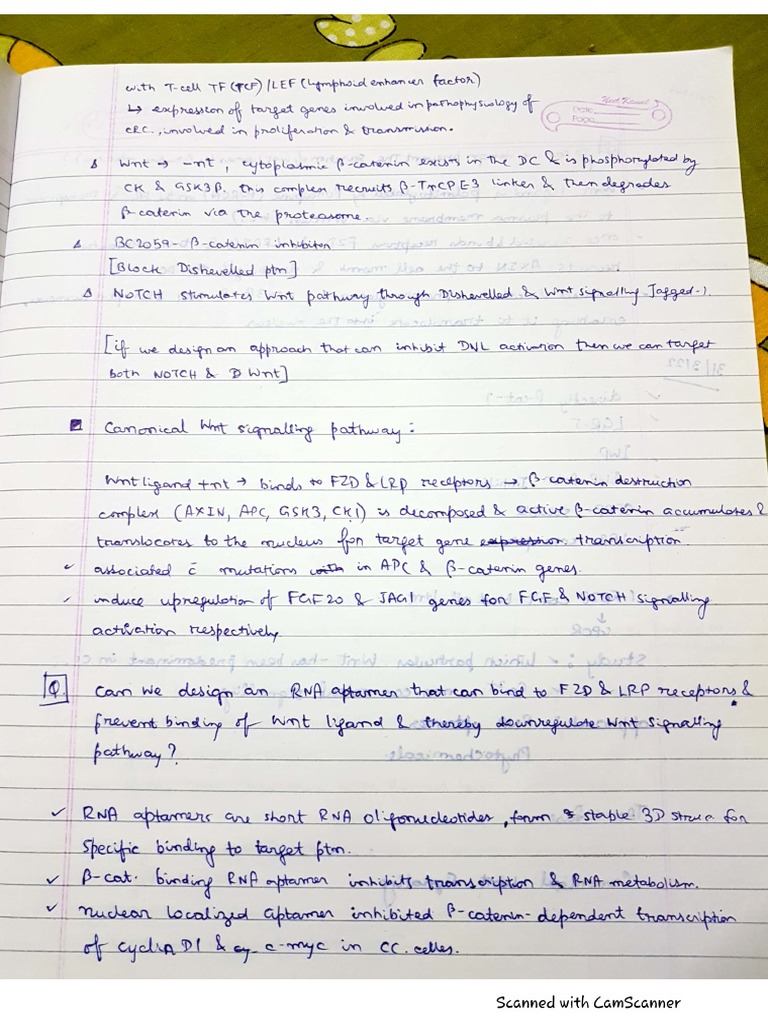 with T-cell TF (TCF) / LEF (Lymphoid enhancer factor)
↳ expression of target genes involved in pathophysiology of
CRC., involved in proliferation & transmission.
Date
Page
Δ Wnt → -nt, cytoplasmic β-catenin exists in the DC & is phosphorylated by
CK & GSK3β, this complex recruits β-TrCP E3 linker & then degrades
β-catenin via the proteasome.
Δ BC2059 - β-catenin inhibitor
[Block Dishevelled ptn]
Δ NOTCH stimulates Wnt pathway through Dishevelled & Wnt signalling Jagged-1.
[if we design an approach that can inhibit DVL activation then we can target
both NOTCH & Wnt]
Canonical Wnt signalling pathway:
Wnt ligand +nt → binds to FZD & LRP receptors → β-catenin destruction
complex (AXIN, APC, GSK3, CK1) is decomposed & active β-catenin accumulates &
translocates to the nucleus for target gene expression transcription.
✓ associated c̄ mutations with in APC & β-catenin genes.
✓ induce upregulation of FGF20 & JAG1 genes for FGF & NOTCH signalling
activation respectively.
Q. Can we design an RNA aptamer that can bind to FZD & LRP receptors &
prevent binding of Wnt ligand & thereby downregulate Wnt signalling
pathway?
✓ RNA aptamers are short RNA oligonucleotides, form stable 3D struc for
specific binding to target ptn.
✓ β-cat. binding RNA aptamer inhibits transcription & RNA metabolism.
✓ nuclear localized aptamer inhibited β-catenin-dependent transcription
of cyclin D1 & c-myc in CC. cells.
Scanned with CamScanner